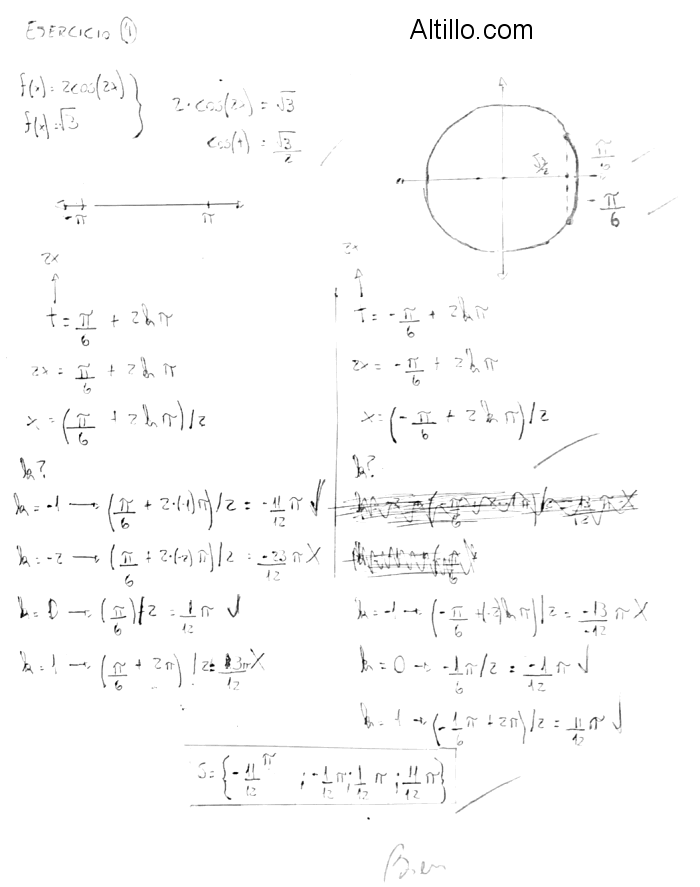 Altillo.com
EJERCICIO 1
f(x) = 2cos(2x)
f(x) = √3
2·cos(2x) = √3
cos(t) = √3/2
-π π
√3/2
π/6
-π/6
2x
t = π/6 + 2kπ
2x = π/6 + 2kπ
x = (π/6 + 2kπ)/2
k?
k = -1 → (π/6 + 2·(-1)π)/2 = -11/12 π ✓
k = -2 → (π/6 + 2·(-2)π)/2 = -23/12 π X
k = 0 → (π/6)/2 = 1/12 π ✓
k = 1 → (π/6 + 2π)/2 = 13π/12 X
2x
T = -π/6 + 2kπ
2x = -π/6 + 2kπ
x = (-π/6 + 2kπ)/2
k?
k = -1 → (-π/6 + (-2)kπ)/2 = -13/-12 π X
k = 0 → -1/6 π/2 = -1/12 π ✓
k = 1 → (-1/6 π + 2π)/2 = 11/12 π ✓
S = {-11/12 π ; -1/12 π ; 1/12 π ; 11/12 π}
Bien